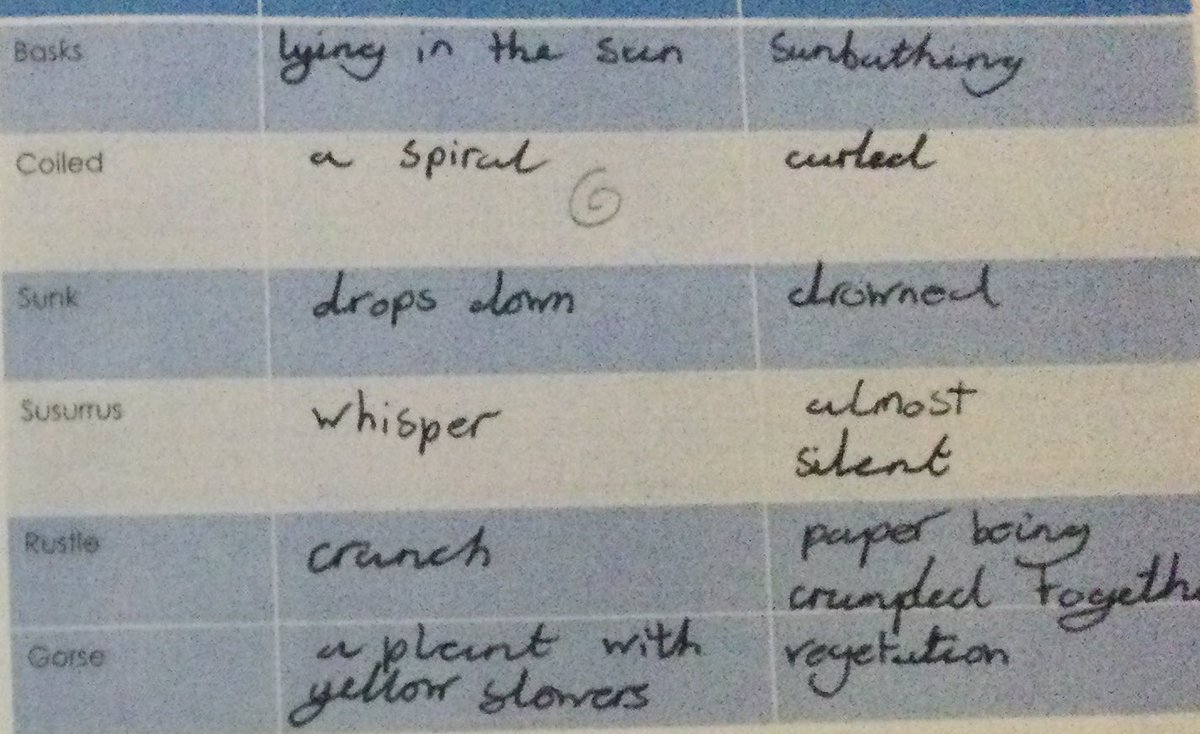 Basks lying in the sun Sunbathing
Coiled a spiral curled
Sunk drops down drowned
Susurrus whisper almost
silent
Rustle crunch paper being
crumpled Togethe
Gorse a plant with vegetation
yellow flowers